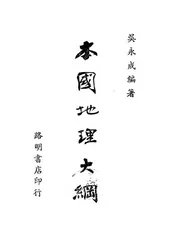 吳永成編著
本國地理大綱
路明書店印行